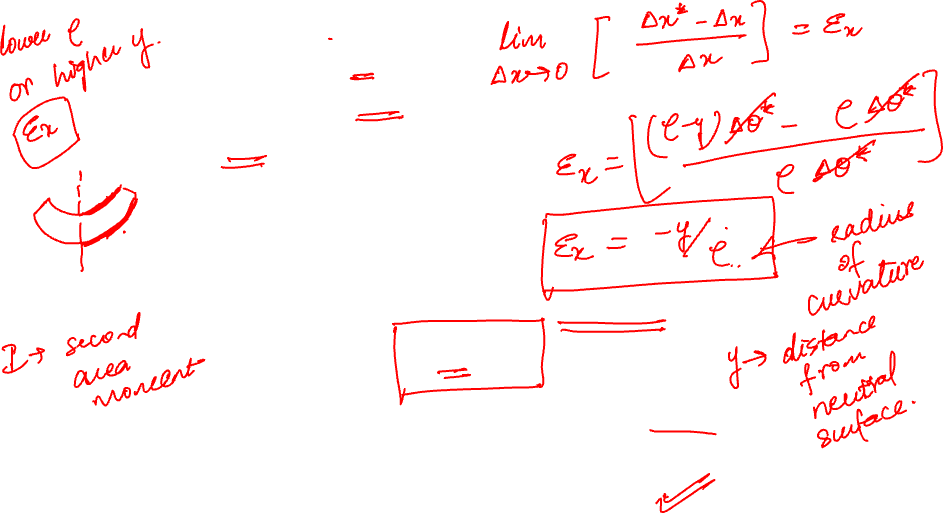 lower ρ
or higher y.
Ɛx
I → second
area
moment
=
=
=
lim
Δx→0 [ (Δx* - Δx) / Δx ] = Ɛx
Ɛx = [ ((ρ-y) Δθ* - ρ Δθ*) / (ρ Δθ*) ]
Ɛx = -y/ρ ← radius
of
curvature
=
y → distance
from
neutral
surface.